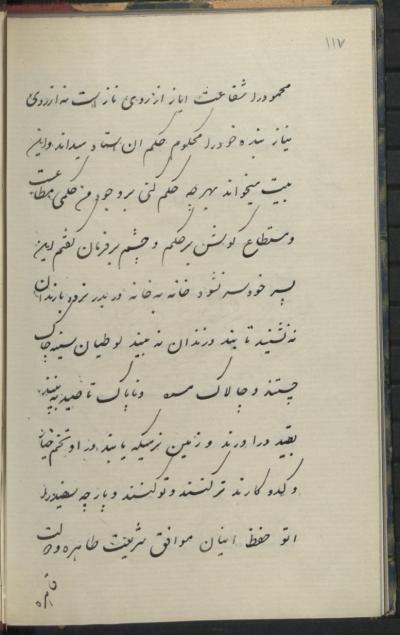 ۱۱۷
محمود را شفاعت ایاز از روی ناز است نه از روی
نیاز بنده خود را محکوم حکم ان استاد میداند و این
بیت میخواند بهر چه حکم کنی بر وجود من حکمی مطاع
و مستطاع کوش بر حکم و چشم بر فرمان کفتم این
پسر خودسر نشود خانه به خانه در بدر نرود با رندان
نه نشیند تا بند و زندان نه بیند لوطیان سینه چاک
چستند و چالاک و ناپاک تا صید به بینند
بقید در اورند و زمین نرمیکه یابند در او تخم خیار
و کدو کارند ترکنند و توکنند و پارچه سفید را
اتو حفظ اینان موافق شریعت طاهره و